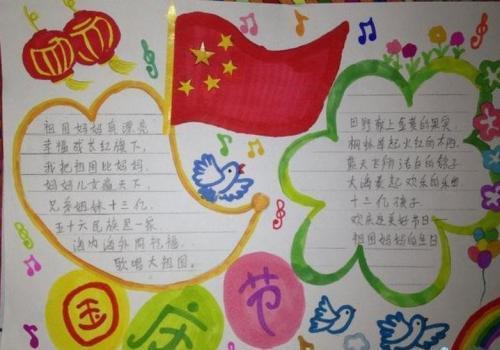 祖国妈妈真漂亮
幸福成长红旗下,
我把祖国比妈妈,
妈妈儿女遍天下,
兄弟姐妹十三亿,
五十六民族是一家,
海内海外同祝福,
歌唱大祖国。
田野献上金黄的果实,
枫林举起火红的木牌,
蓝天飞翔洁白的鸽子
大海奏起欢乐的乐曲
十三亿孩子
欢乐在美好节日—
祖国妈妈的生日
国庆节